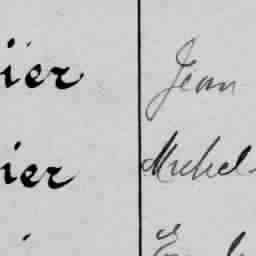 ier Jean
ier Michel